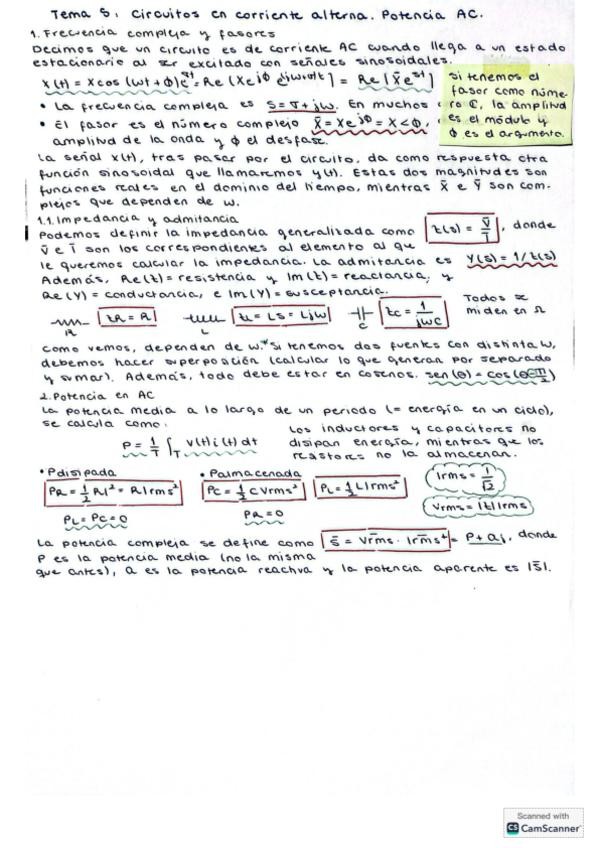 Tema 5: Circuitos en corriente alterna. Potencia AC.
1. Frecuencia compleja y fasores
Decimos que un circuito es de corriente AC cuando llega a un estado
estacionario al ser excitado con señales sinosoidales.
x(t) = X cos (ωt + ϕ)e^σt = Re (X e^jϕ e^jωt e^σt) = Re[X̄e^st]
Si tenemos el
fasor como núme-
ro ℂ, la amplitud
es el módulo y
ϕ es el argumento.
• La frecuencia compleja es s = σ + jω. En muchos
• El fasor es el número complejo X̄ = Xe^jϕ = X<ϕ,
amplitud de la onda y ϕ el desfase.
La señal x(t), tras pasar por el circuito, da como respuesta otra
función sinosoidal que llamaremos y(t). Estas dos magnitudes son
funciones reales en el dominio del tiempo, mientras X̄ e Ȳ son com-
plejos que dependen de ω.
1.1. Impedancia y admitancia
Podemos definir la impedancia generalizada como Z(s) = V̄/Ī, donde
V̄ e Ī son los correspondientes al elemento al que
le queremos calcular la impedancia. La admitancia es Y(s) = 1/Z(s)
Además, Re(Z) = resistencia y Im(Z) = reactancia, y
Re(Y) = conductancia, e Im(Y) = susceptancia.
R ZR = R L ZL = Ls = Ljω C ZC = 1/jωC Todos se
miden en Ω
Como vemos, dependen de ω. * Si tenemos dos fuentes con distinta ω,
debemos hacer superposición (calcular lo que generan por separado
y sumar). Además, todo debe estar en cosenos. sen(θ) = cos(θ-π/2)
2. Potencia en AC
La potencia media a lo largo de un periodo (= energía en un ciclo),
se calcula como:
P = 1/T ∫T v(t) i(t) dt
Los inductores y capacitores no
disipan energía, mientras que los
resistores no la almacenan.
• Pdisipada
PR = 1/2 RI² = R Irms²
PL = PC = 0
• Palmacenada
PC = 1/2 C Vrms² PL = 1/2 L Irms²
PR = 0
Irms = 1/√2
Vrms = |Z| Irms
La potencia compleja se define como S̄ = V̄rms · Īrms* = P + Qj, donde
P es la potencia media (no la misma
que antes), Q es la potencia reactiva y la potencia aparente es |S̄|.
Scanned with
CS CamScanner